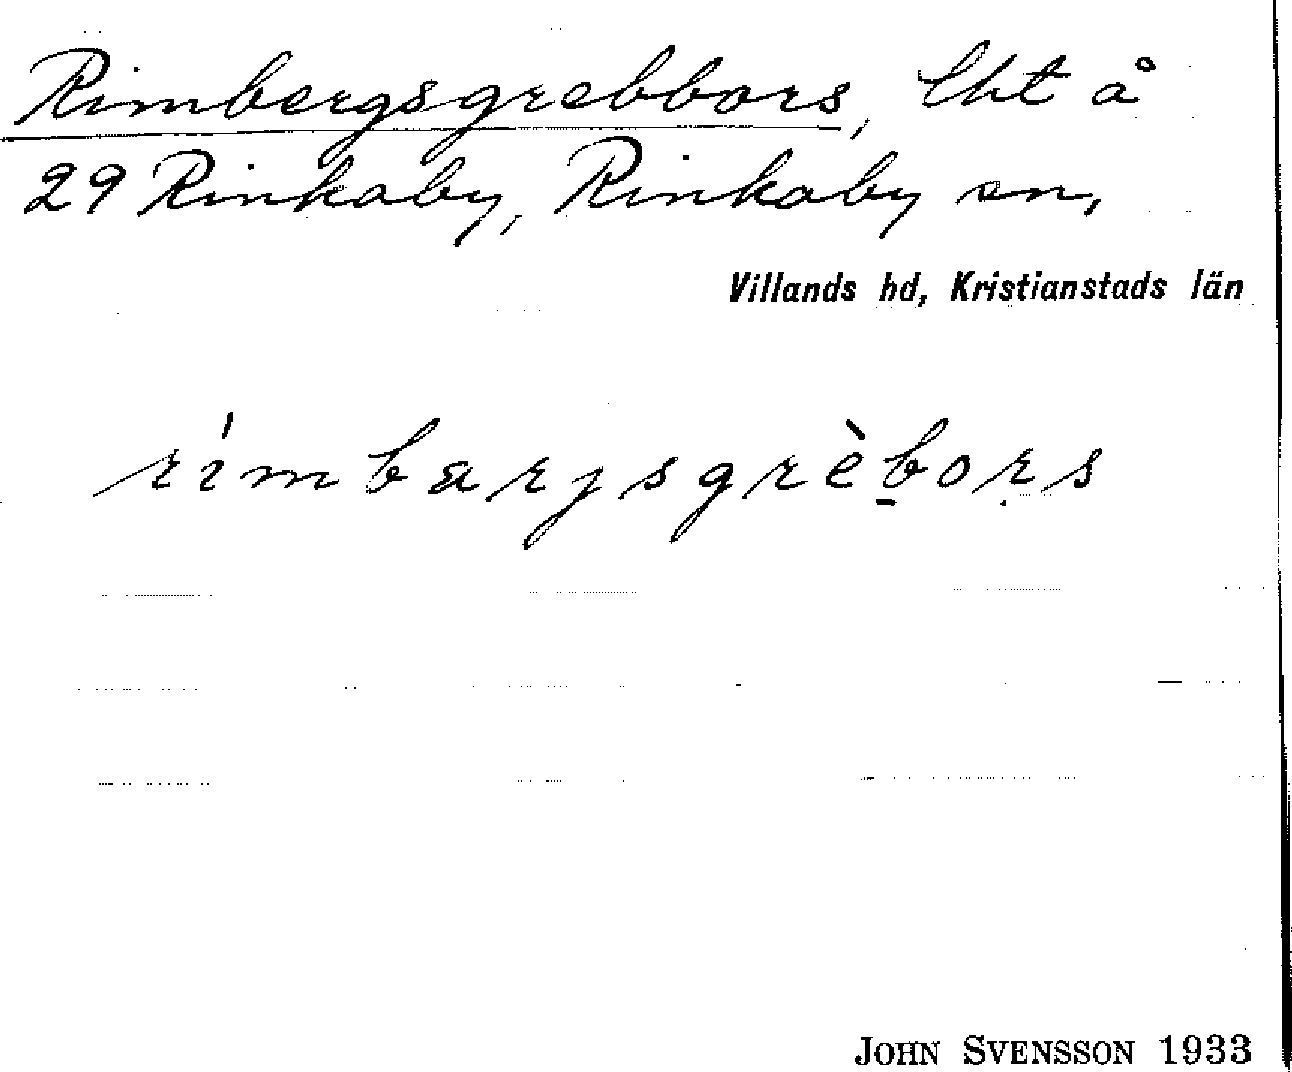 Rimbergsgrebbors, lht å
29 Rinkaby, Rinkaby sn,
Villands hd, Kristianstads län
rímbarjsgrèḇoṛs
JOHN SVENSSON 1933